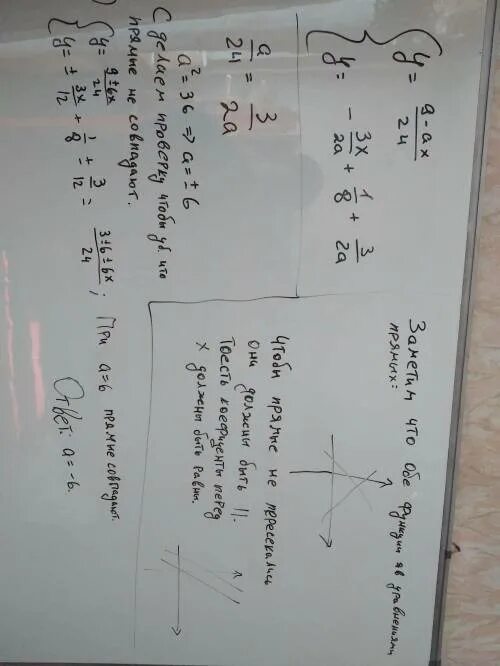 y = (9 - ax)/24
y = - 3x/2a + 1/8 + 3/2a
a/24 = 3/2a
a² = 36 => a = ± 6
Сделаем проверку чтобы уб. что
прямые не совпадают.
y = (9 ± 6x)/24
y = ± 3x/12 + 1/8 ± 3/12 = (3 ± 6 ± 6x)/24 ; При a = 6 прямые совпадают.
Ответ: a = -6.
Заметим что обе функции яв уравнениями
прямых:
Чтобы прямые не пересекались
они должены быть ||.
Тоесть коефиценты перед
x должены быть равны.